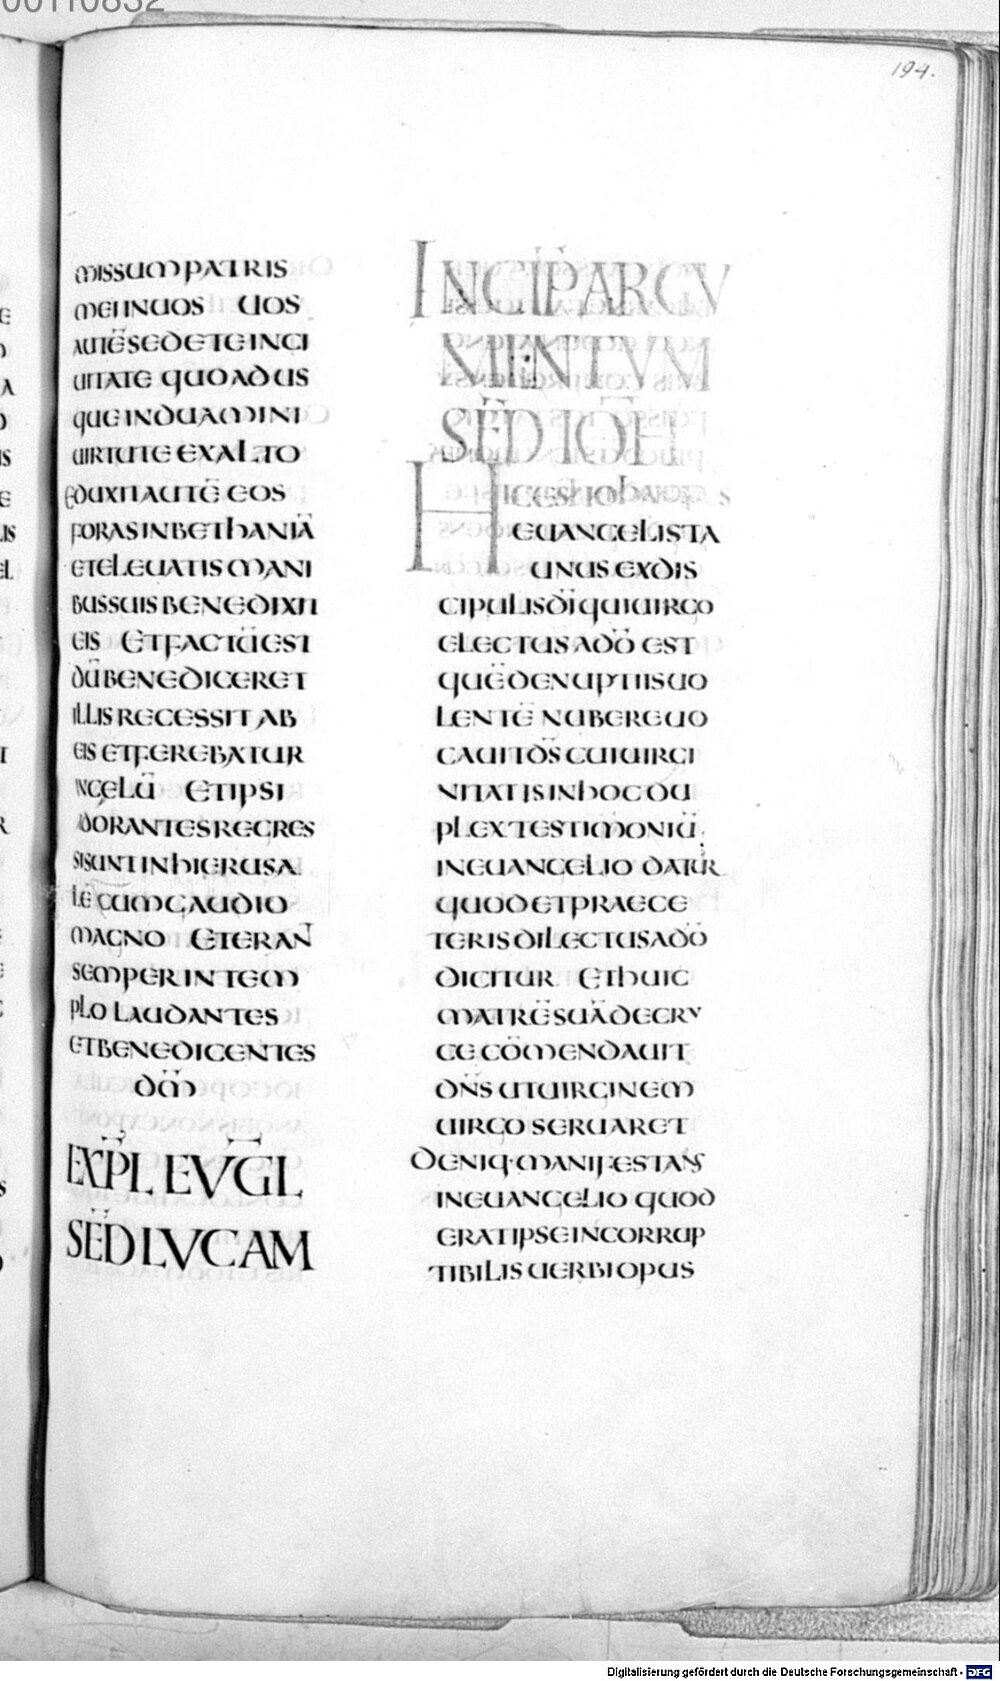 00110832
194.
MISSUM PATRIS
MEI IN UOS UOS
AUTĒ SEDETE IN CI
UITATE QUOADUS
QUE INDUAMINI
UIRTUTE EX ALTO
EDUXIT AUTĒ EOS
FORAS IN BETHANIĀ
ET ELEUATIS MANI
BUS SUIS BENEDIXIT
EIS ET FACTŪ EST
DŪ BENEDICERET
ILLIS RECESSIT AB
EIS ET FEREBATUR
IN CELŪ ET IPSI
ADORANTES REGRES
SI SUNT IN HIERUSA
LĒ CUM GAUDIO
MAGNO ET ERAN̄T
SEMPER IN TEM
PLO LAUDANTES
ET BENEDICENTES
DM̄
EXPL̄ EVGL̄
SED̄ LVCAM
INCIP̄ ARGV
MENTVM
SED̄ IOH̄
HIC EST IOHANNES
EUANGELISTA
UNUS EX DIS
CIPULIS DĪ QUI UIRGO
ELECTUS A DŌ EST
QUĒ DE NUPTIIS UO
LENTĒ NUBERE UO
CAUIT DS̄ CUI UIRGI
NITATIS IN HOC DU
PLEX TESTIMONIŪ
IN EUANGELIO DATUR
QUOD ET PRAE CE
TERIS DILECTUS A DŌ
DICITUR ET HUIC
MATRĒ SUĀ DE CRU
CE CŌMENDAUIT
DN̄S UT UIRGINEM
UIRGO SERUARET
DENIQ· MANIFESTANS
IN EUANGELIO QUOD
ERAT IPSE INCORRUP
TIBILIS UERBI OPUS
Digitalisierung gefördert durch die Deutsche Forschungsgemeinschaft - DFG